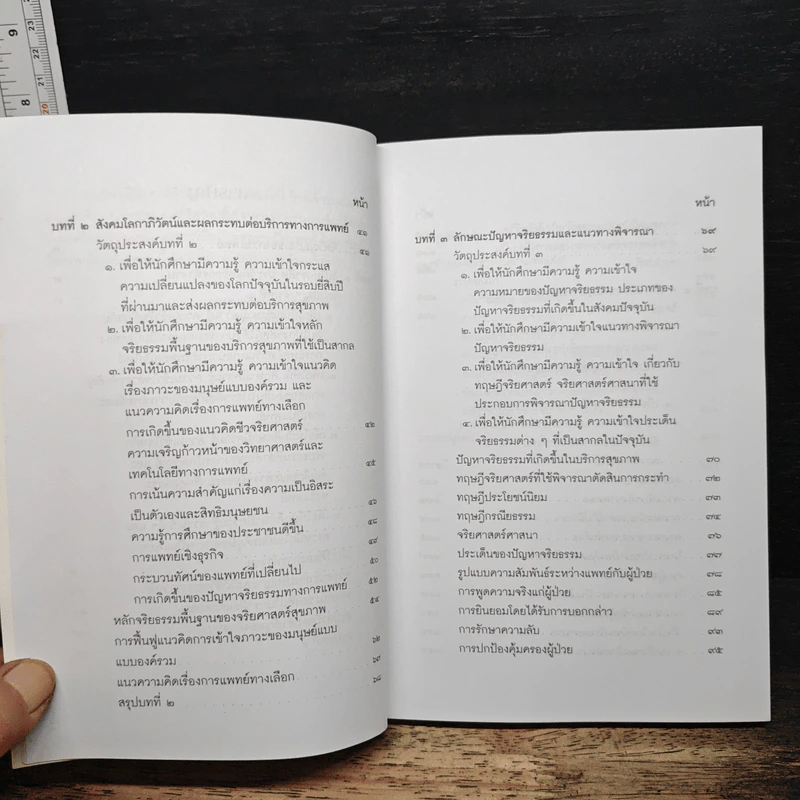 9
8
23
22
21
20
หน้า
บทที่ ๒ สังคมโลกาภิวัตน์และผลกระทบต่อบริการทางการแพทย์ ๔๑
วัตถุประสงค์บทที่ ๒ ๔๑
๑. เพื่อให้นักศึกษามีความรู้ ความเข้าใจกระแส
ความเปลี่ยนแปลงของโลกปัจจุบันในรอบยี่สิบปี
ที่ผ่านมาและส่งผลกระทบต่อบริการสุขภาพ
๒. เพื่อให้นักศึกษามีความรู้ ความเข้าใจหลัก
จริยธรรมพื้นฐานของบริการสุขภาพที่ใช้เป็นสากล
๓. เพื่อให้นักศึกษามีความรู้ ความเข้าใจแนวคิด
เรื่องภาวะของมนุษย์แบบองค์รวม และ
แนวความคิดเรื่องการแพทย์ทางเลือก
การเกิดขึ้นของแนวคิดชีวจริยศาสตร์ ๔๒
ความเจริญก้าวหน้าของวิทยาศาสตร์และ
เทคโนโลยีทางการแพทย์ ๔๕
การเน้นความสำคัญแก่เรื่องความเป็นอิสระ
เป็นตัวเองและสิทธิมนุษยชน ๔๖
ความรู้การศึกษาของประชาชนดีขึ้น ๔๘
การแพทย์เชิงธุรกิจ ๔๙
กระบวนทัศน์ของแพทย์ที่เปลี่ยนไป ๕๐
การเกิดขึ้นของปัญหาจริยธรรมทางการแพทย์ ๕๒
หลักจริยธรรมพื้นฐานของจริยศาสตร์สุขภาพ ๕๔
การฟื้นฟูแนวคิดการเข้าใจภาวะของมนุษย์แบบ
แบบองค์รวม ๖๒
แนวความคิดเรื่องการแพทย์ทางเลือก ๖๗
สรุปบทที่ ๒ ๖๘
หน้า
บทที่ ๓ ลักษณะปัญหาจริยธรรมและแนวทางพิจารณา ๖๙
วัตถุประสงค์บทที่ ๓ ๖๙
๑. เพื่อให้นักศึกษามีความรู้ ความเข้าใจ
ความหมายของปัญหาจริยธรรม ประเภทของ
ปัญหาจริยธรรมที่เกิดขึ้นในสังคมปัจจุบัน
๒. เพื่อให้นักศึกษามีความเข้าใจแนวทางพิจารณา
ปัญหาจริยธรรม
๓. เพื่อให้นักศึกษามีความรู้ ความเข้าใจ เกี่ยวกับ
ทฤษฎีจริยศาสตร์ จริยศาสตร์ศาสนาที่ใช้
ประกอบการพิจารณาปัญหาจริยธรรม
๔. เพื่อให้นักศึกษามีความรู้ ความเข้าใจประเด็น
จริยธรรมต่าง ๆ ที่เป็นสากลในปัจจุบัน
ปัญหาจริยธรรมที่เกิดขึ้นในบริการสุขภาพ ๗๐
ทฤษฎีจริยศาสตร์ที่ใช้พิจารณาตัดสินการกระทำ ๗๒
ทฤษฎีประโยชน์นิยม ๗๓
ทฤษฎีกรณียธรรม ๗๔
จริยศาสตร์ศาสนา ๗๖
ประเด็นของปัญหาจริยธรรม ๗๗
รูปแบบความสัมพันธ์ระหว่างแพทย์กับผู้ป่วย ๗๘
การพูดความจริงแก่ผู้ป่วย ๘๕
การยินยอมโดยได้รับการบอกกล่าว ๘๙
การรักษาความลับ ๙๓
การปกป้องคุ้มครองผู้ป่วย ๙๕